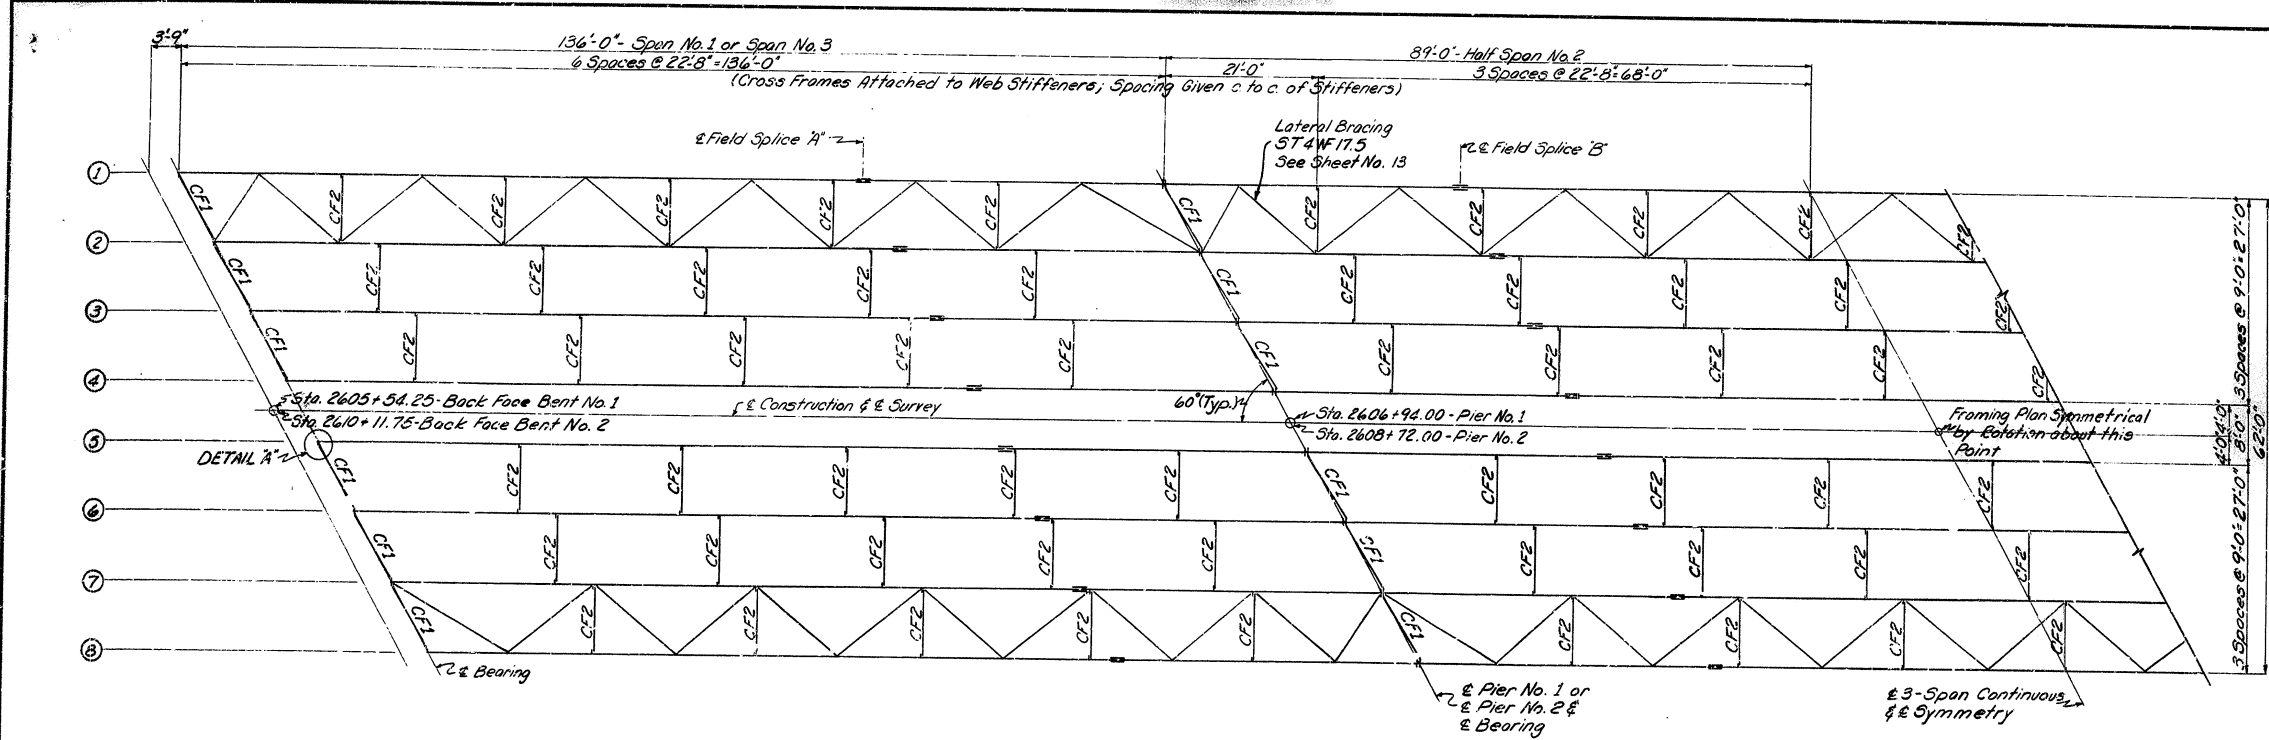 3'-9"
136'-0"- Span No. 1 or Span No. 3
89'-0"- Half Span No. 2
6 Spaces @ 22'-8"=136'-0"
21'-0"
3 Spaces @ 22'-8"=68'-0"
(Cross Frames Attached to Web Stiffeners; Spacing Given c. to c. of Stiffeners)
℄ Field Splice "A"
Lateral Bracing
ST 4 WF 17.5
See Sheet No. 13
℄ Field Splice "B"
1
CF1 CF2 CF2 CF2 CF2 CF2 CF1 CF2 CF2 CF2 CF2 CF2
2
CF1 CF2 CF2 CF2 CF2 CF2 CF1 CF2 CF2 CF2 CF2 CF2
3
CF1 CF2 CF2 CF2 CF2 CF2 CF1 CF2 CF2 CF2 CF2 CF2
4
Sta. 2605+54.25-Back Face Bent No. 1
Sta. 2610+11.75-Back Face Bent No. 2
℄ Construction & ℄ Survey
60°(Typ.)
Sta. 2606+94.00-Pier No. 1
Sta. 2608+72.00-Pier No. 2
Framing Plan Symmetrical
by Rotation about this
Point
5
DETAIL "A"
CF1 CF2 CF2 CF2 CF2 CF2 CF1 CF2 CF2 CF2 CF2
6
CF1 CF2 CF2 CF2 CF2 CF2 CF1 CF2 CF2 CF2 CF2
7
CF1 CF2 CF2 CF2 CF2 CF2 CF1 CF2 CF2 CF2 CF2
8
℄ Bearing
℄ Pier No. 1 or
℄ Pier No. 2 &
℄ Bearing
℄ 3-Span Continuous
& ℄ Symmetry
3 Spaces @ 9'-0"=27'-0"
4'-0" 4'-0"
8'-0"
3 Spaces @ 9'-0"=27'-0"
62'-0"